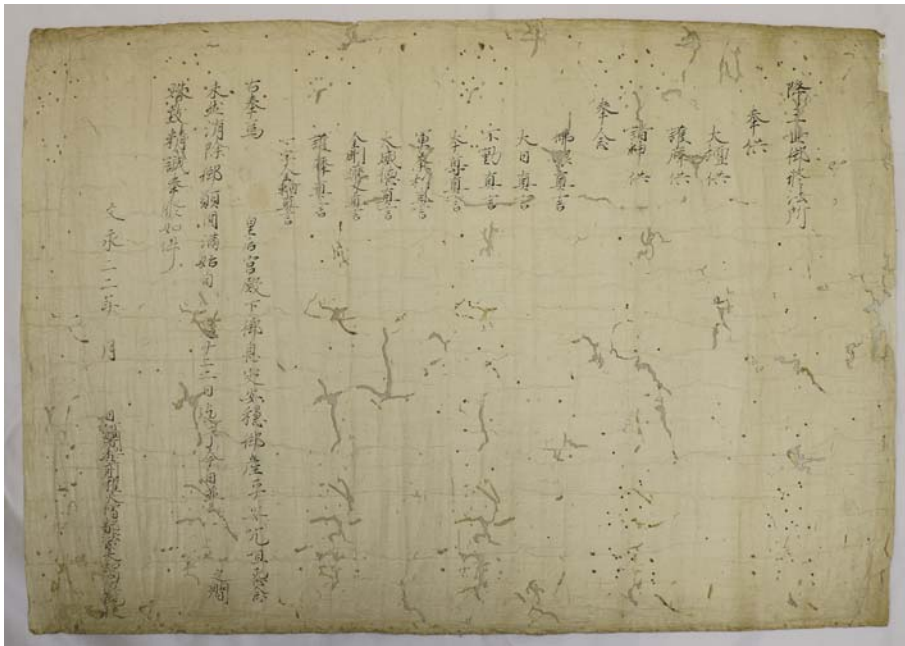 降三世御修法所
奉供
大壇供
護摩供
諸神供
奉念
佛眼真言
大日真言
不動真言
本尊真言
軍荼利真言
大威徳真言
金剛夜叉真言
護摩真言
一字金輪真言
右奉為 皇后宮殿下御息災安穏御産平安
未然消除御願円満始自 十二日 今日 之間
殊致精誠奉修如件
文永二二年 月 日